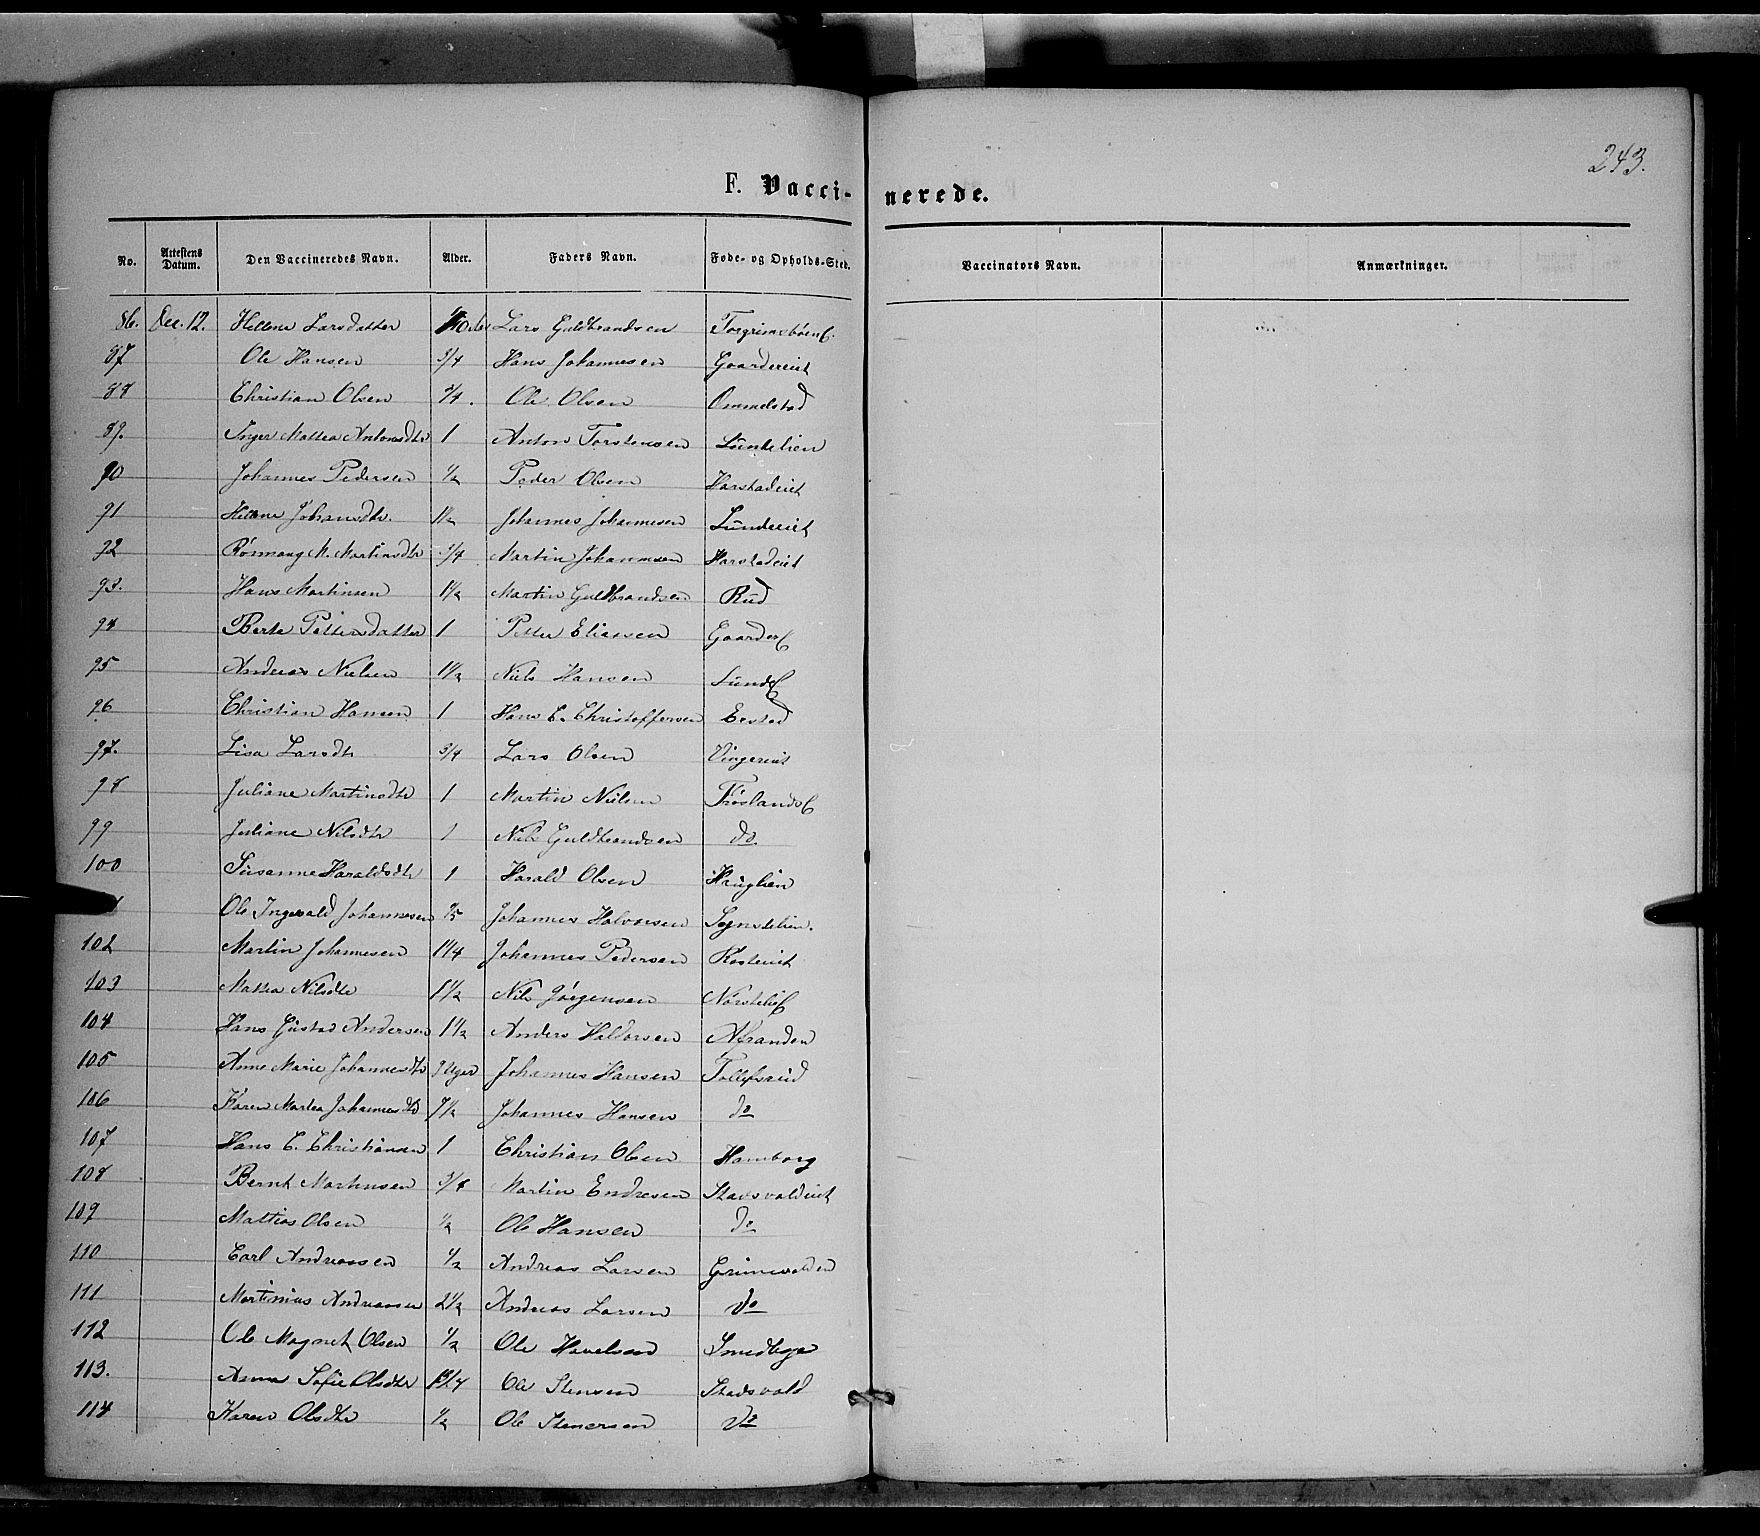 243.
F. Vacci-nerede.
No. Attestens Datum. Den Vaccineredes Navn. Alder. Faders Navn. Føde- og Opholds-Sted. Vaccinators Navn. Anmærkninger.
86. Dec. 12. Hellene Larsdatter Lars Guldbrandsen Torgrimsbøen
87 Ole Hansen 3/4 Hans Johannesen Gaardereiet
88 Christian Olsen 3/4. Ole Olsen Ommelstad
89. Inger Mattea Antonsdtr 1 Anton Torstensen Lundelien
90 Johannes Pedersen 1/2 Peder Olsen Harstadeiet
91 Hellene Johansdtr. 1 1/2 Johannes Johannesen Lundereiet
92 M. Martinsdtr 3/4 Martin Johannesen Harstadeiet
93. Hans Martinsen 1 1/2 Martin Guldbrandsen Rud
94 Berte Pettersdatter 1 Petter Eliassen Gaarder
95 Andreas Nielsen 1 1/2 Niels Hansen Lunde
96 Christian Hansen 1 Hans C. Christoffersen Egstad
97. Lisa Larsdtr 3/4 Lars Olsen Vingereiet
98 Juliane Martinsdtr 1 Martin Nielsen Frøslands
99 Juliane Nilsdtr 1 Nils Guldbrandsen do
100 Susanne Haraldsdtr 1 Harald Olsen Hauglien
Ole Ingevald Johannesen Johannes Halvorsen Sognslien.
102 Martin Johannesen 1 1/4 Johannes Pedersen Rosteiet
103 Mattea Nilsdtr 1 1/2 Nils Jørgensen Nørstelie
104 Hans Gustav Andersen 1 1/2 Anders Haldorsen
105 Anne Marie Johannesdtr 9 Uger Johannes Hansen Tollefsrud
106 Karen Martea Johannesdtr 7 1/2 Johannes Hansen do
107 Hans C. Christiansen 1 Christian Olsen Hamborg
108 Bernt Martinsen 3/4 Martin Endresen Stadsvoldeiet
109 Mattias Olsen 1/2 Ole Hansen do
110 Carl Andreassen 1/2 Andreas Larsen Grimsvolden
111 Martinius Andreassen 2 1/2 Andreas Larsen do
112 Ole Magnet Olsen 1/2 Ole Havelsen
113. Anna Sofie Olsdtr Ole Stensen Stadsvold
114 Karen Olsdtr 1/2 Ole Stenersen do